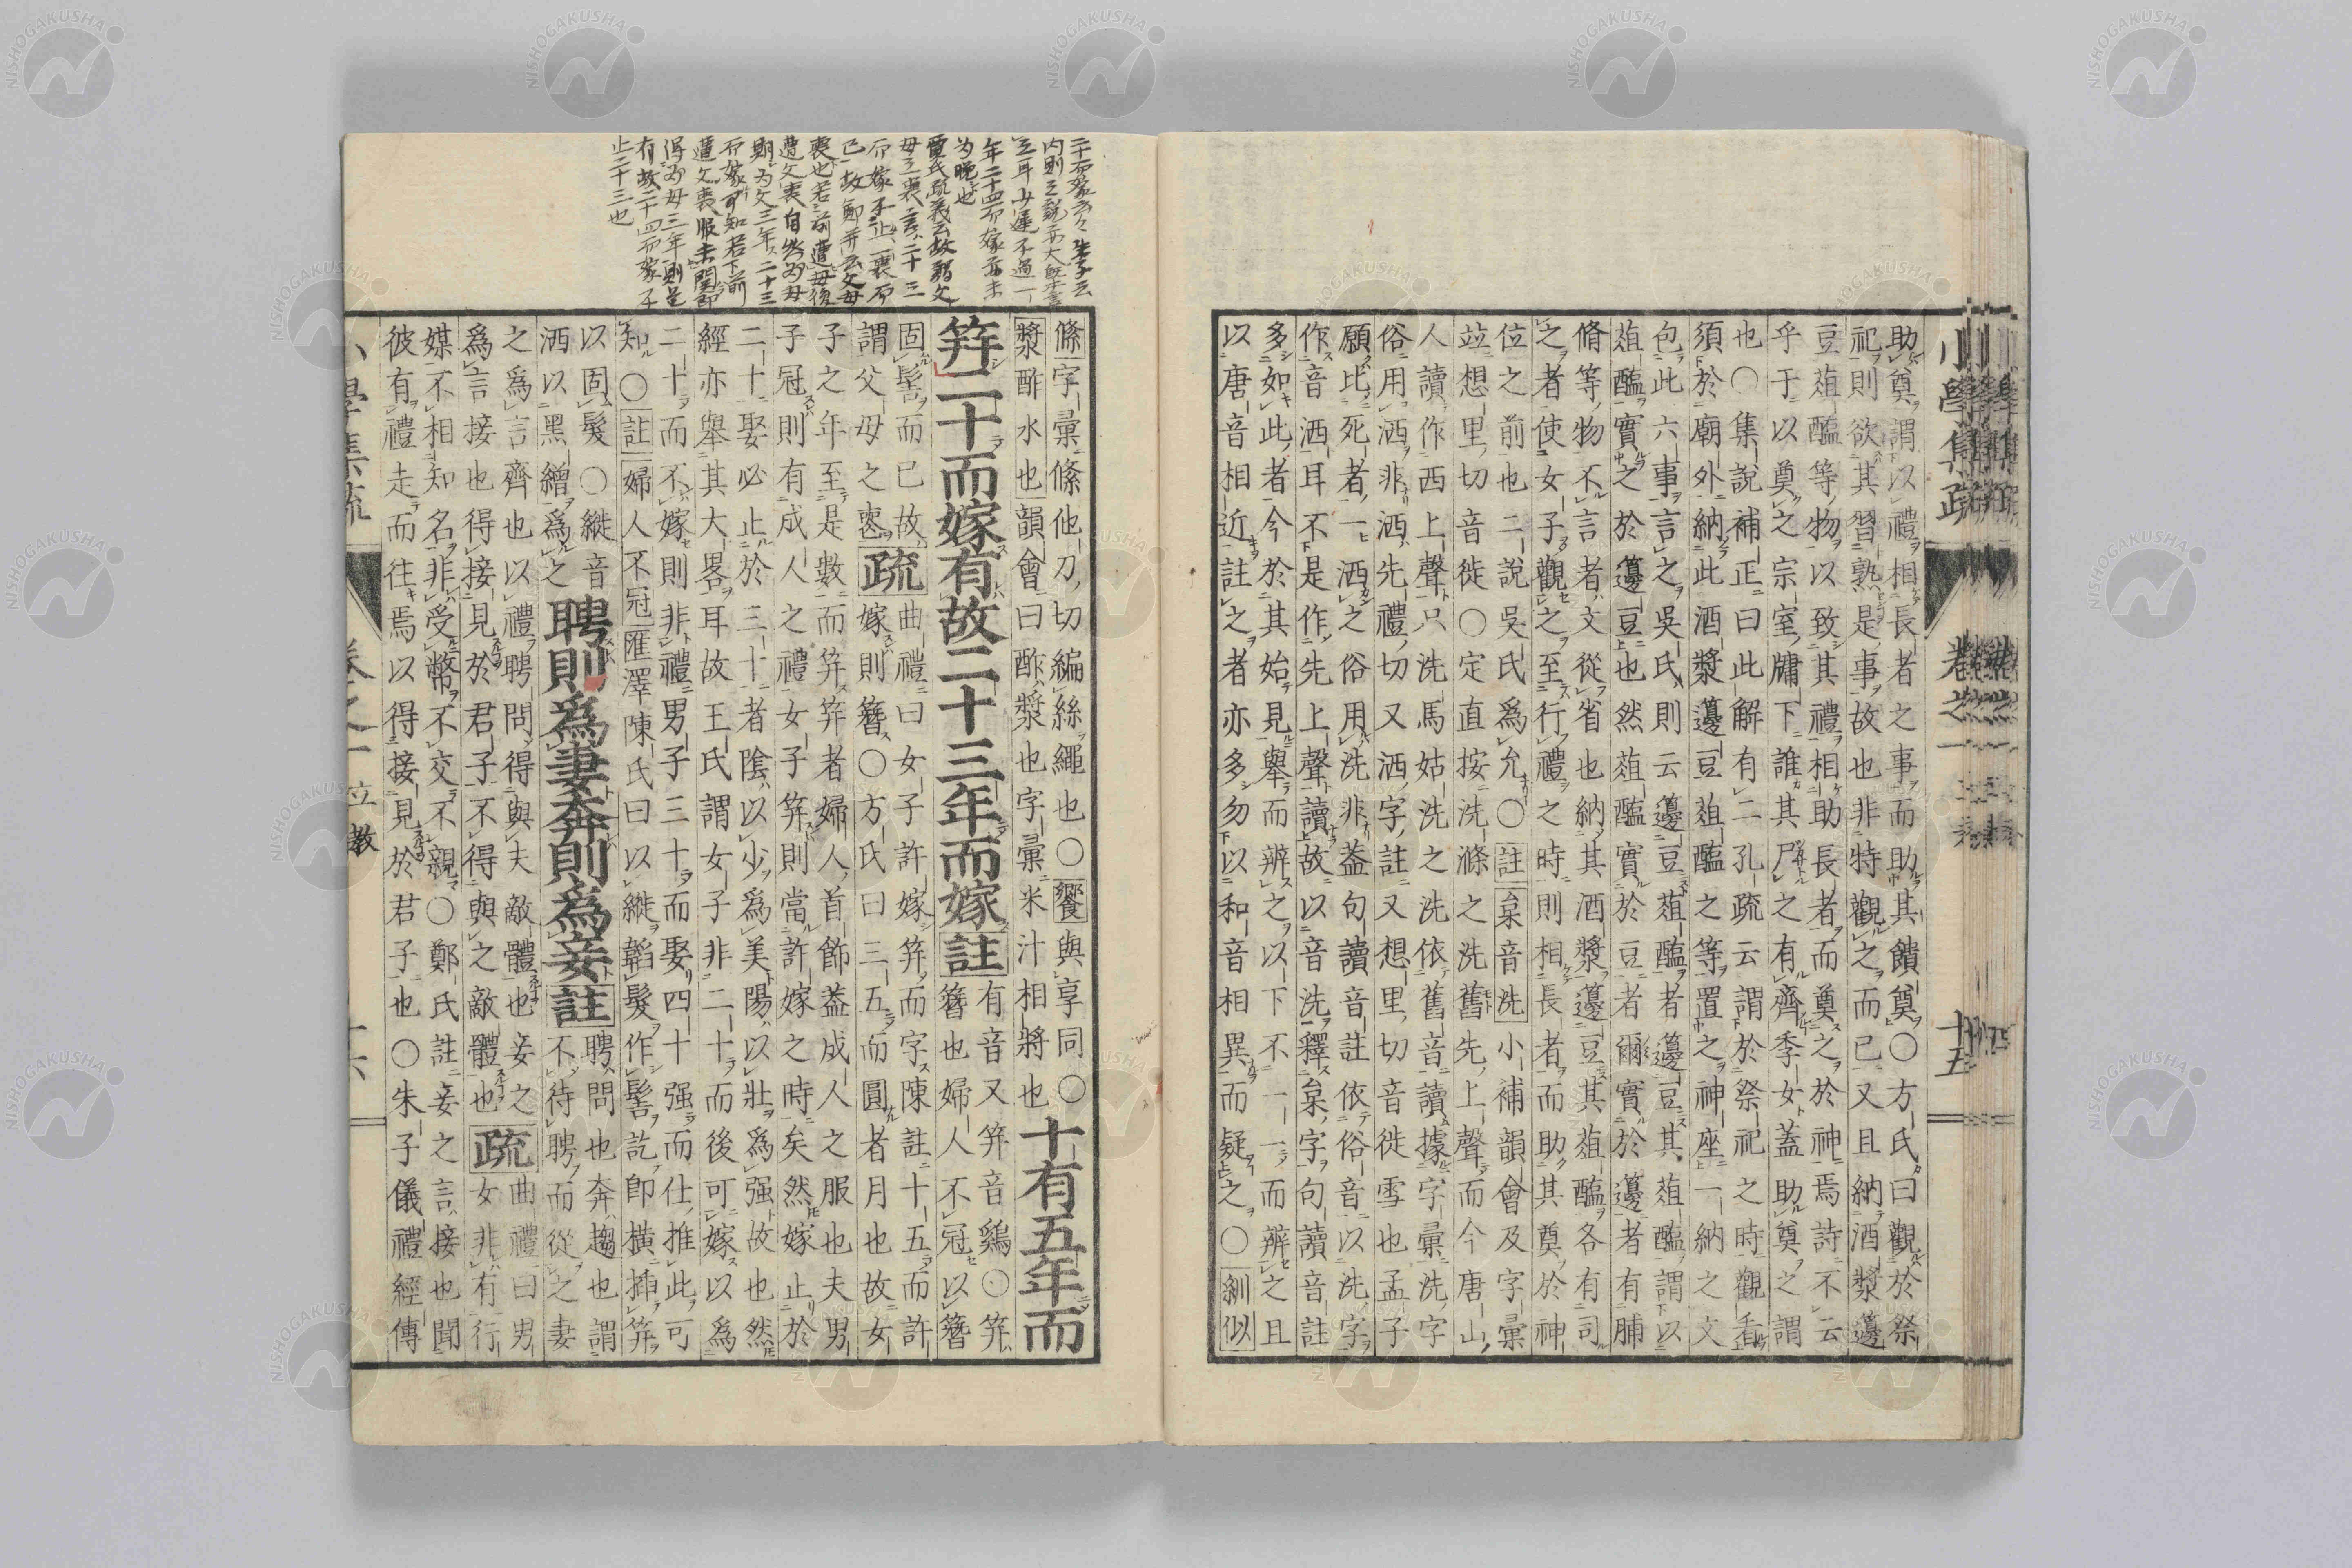 小學集疏 卷之一 十五
助奠謂以禮相長者之事而助其饋奠○方氏曰觀於祭
祀則欲其習熟是事故也非特觀之而已又且納酒漿籩
豆葅醢等物以致其禮相助長者而奠之於神焉詩不云
乎于以奠之宗室牖下誰其尸之有齊季女蓋助奠之謂
也○集說補正曰此解有二孔疏云謂於祭祀之時觀看
須於廟外納此酒漿籩豆葅醢之等置之神座一納之文
包此六事言之吳氏則云籩豆葅醢者籩豆其葅醢謂以
葅醢實之於籩豆也然葅醢實於豆者爾實於籩者有脯
脩等物不言者文從省也納其酒漿籩豆其葅醢各有司
之者使女子觀之至行禮之時則相長者而助其奠於神
位之前也二說吳氏爲允○註枲音洗小補韻會及字彙
竝想里切音徙○定直按洗滌之洗舊先上聲而今唐山
人讀作西上聲只洗馬姑洗之洗依舊音讀據字彙洗字
俗用洒非洒先禮切又洒字註又想里切音徙雪也孟子
願比死者一洒之俗用洗非葢句讀音註依俗音以洗字
作音洒耳不是作先上聲讀故以音洗釋枲字句讀音註
多如此者今於其始見舉而辨之以下不一一而辨之且
以唐音相近註之者亦多勿以和音相異而疑之○紃似
二十而嫁云々朱子云
內則之說亦大
年二十四而嫁亦未
爲晩也
賈氏疏義云故謂父
母之喪言二十三
而嫁不止一喪而
已故鄭并云父母
喪也若前遭母後
遭父喪自然爲母
期爲父三年二十三
而嫁可知若下前
遭父喪服未闋卽
得爲母三年則是
有故二十四而嫁不
止二十三也
絛字彙絛他刀切編絲繩也○饗與享同○
漿酢水也韻會曰酢漿也字彙米汁相將也
十有五年而
笄二十而嫁有故二十三年而嫁註
有音又笄音鷄○笄
簪也婦人不冠以簪
固髻而已故
謂父母之喪
疏
曲禮曰女子許嫁笄而字陳註十五而許
嫁則簪○方氏曰三五而圓者月也故女
子之年至是數而笄笄者婦人首飾葢成人之服也夫男
子冠則有成人之禮女子笄則當許嫁之時矣然嫁止於
二十娶必止於三十者陰以少爲美陽以壯爲强故也然
經亦舉其大畧耳故王氏謂女子非二十而後可嫁以爲
二十而不嫁則非禮男子三十而娶四十强而仕推此可
知○註婦人不冠匯澤陳氏曰以縰韜髮作髻訖卽橫揷笄
以固髮○縰音
洒以黑繒爲之
聘則爲妻奔則爲妾註
聘問也奔趨也謂
不待聘而從之妻
之爲言齊也以禮聘問得與夫敵體也妾之
爲言接也得接見於君子不得與之敵體也
疏
曲禮曰男
女非有行
媒不相知名非受幣不交不親○鄭氏註妾之言接也聞
彼有禮走而往焉以得接見於君子也○朱子儀禮經傳
小學集疏 卷之一 立教 十六